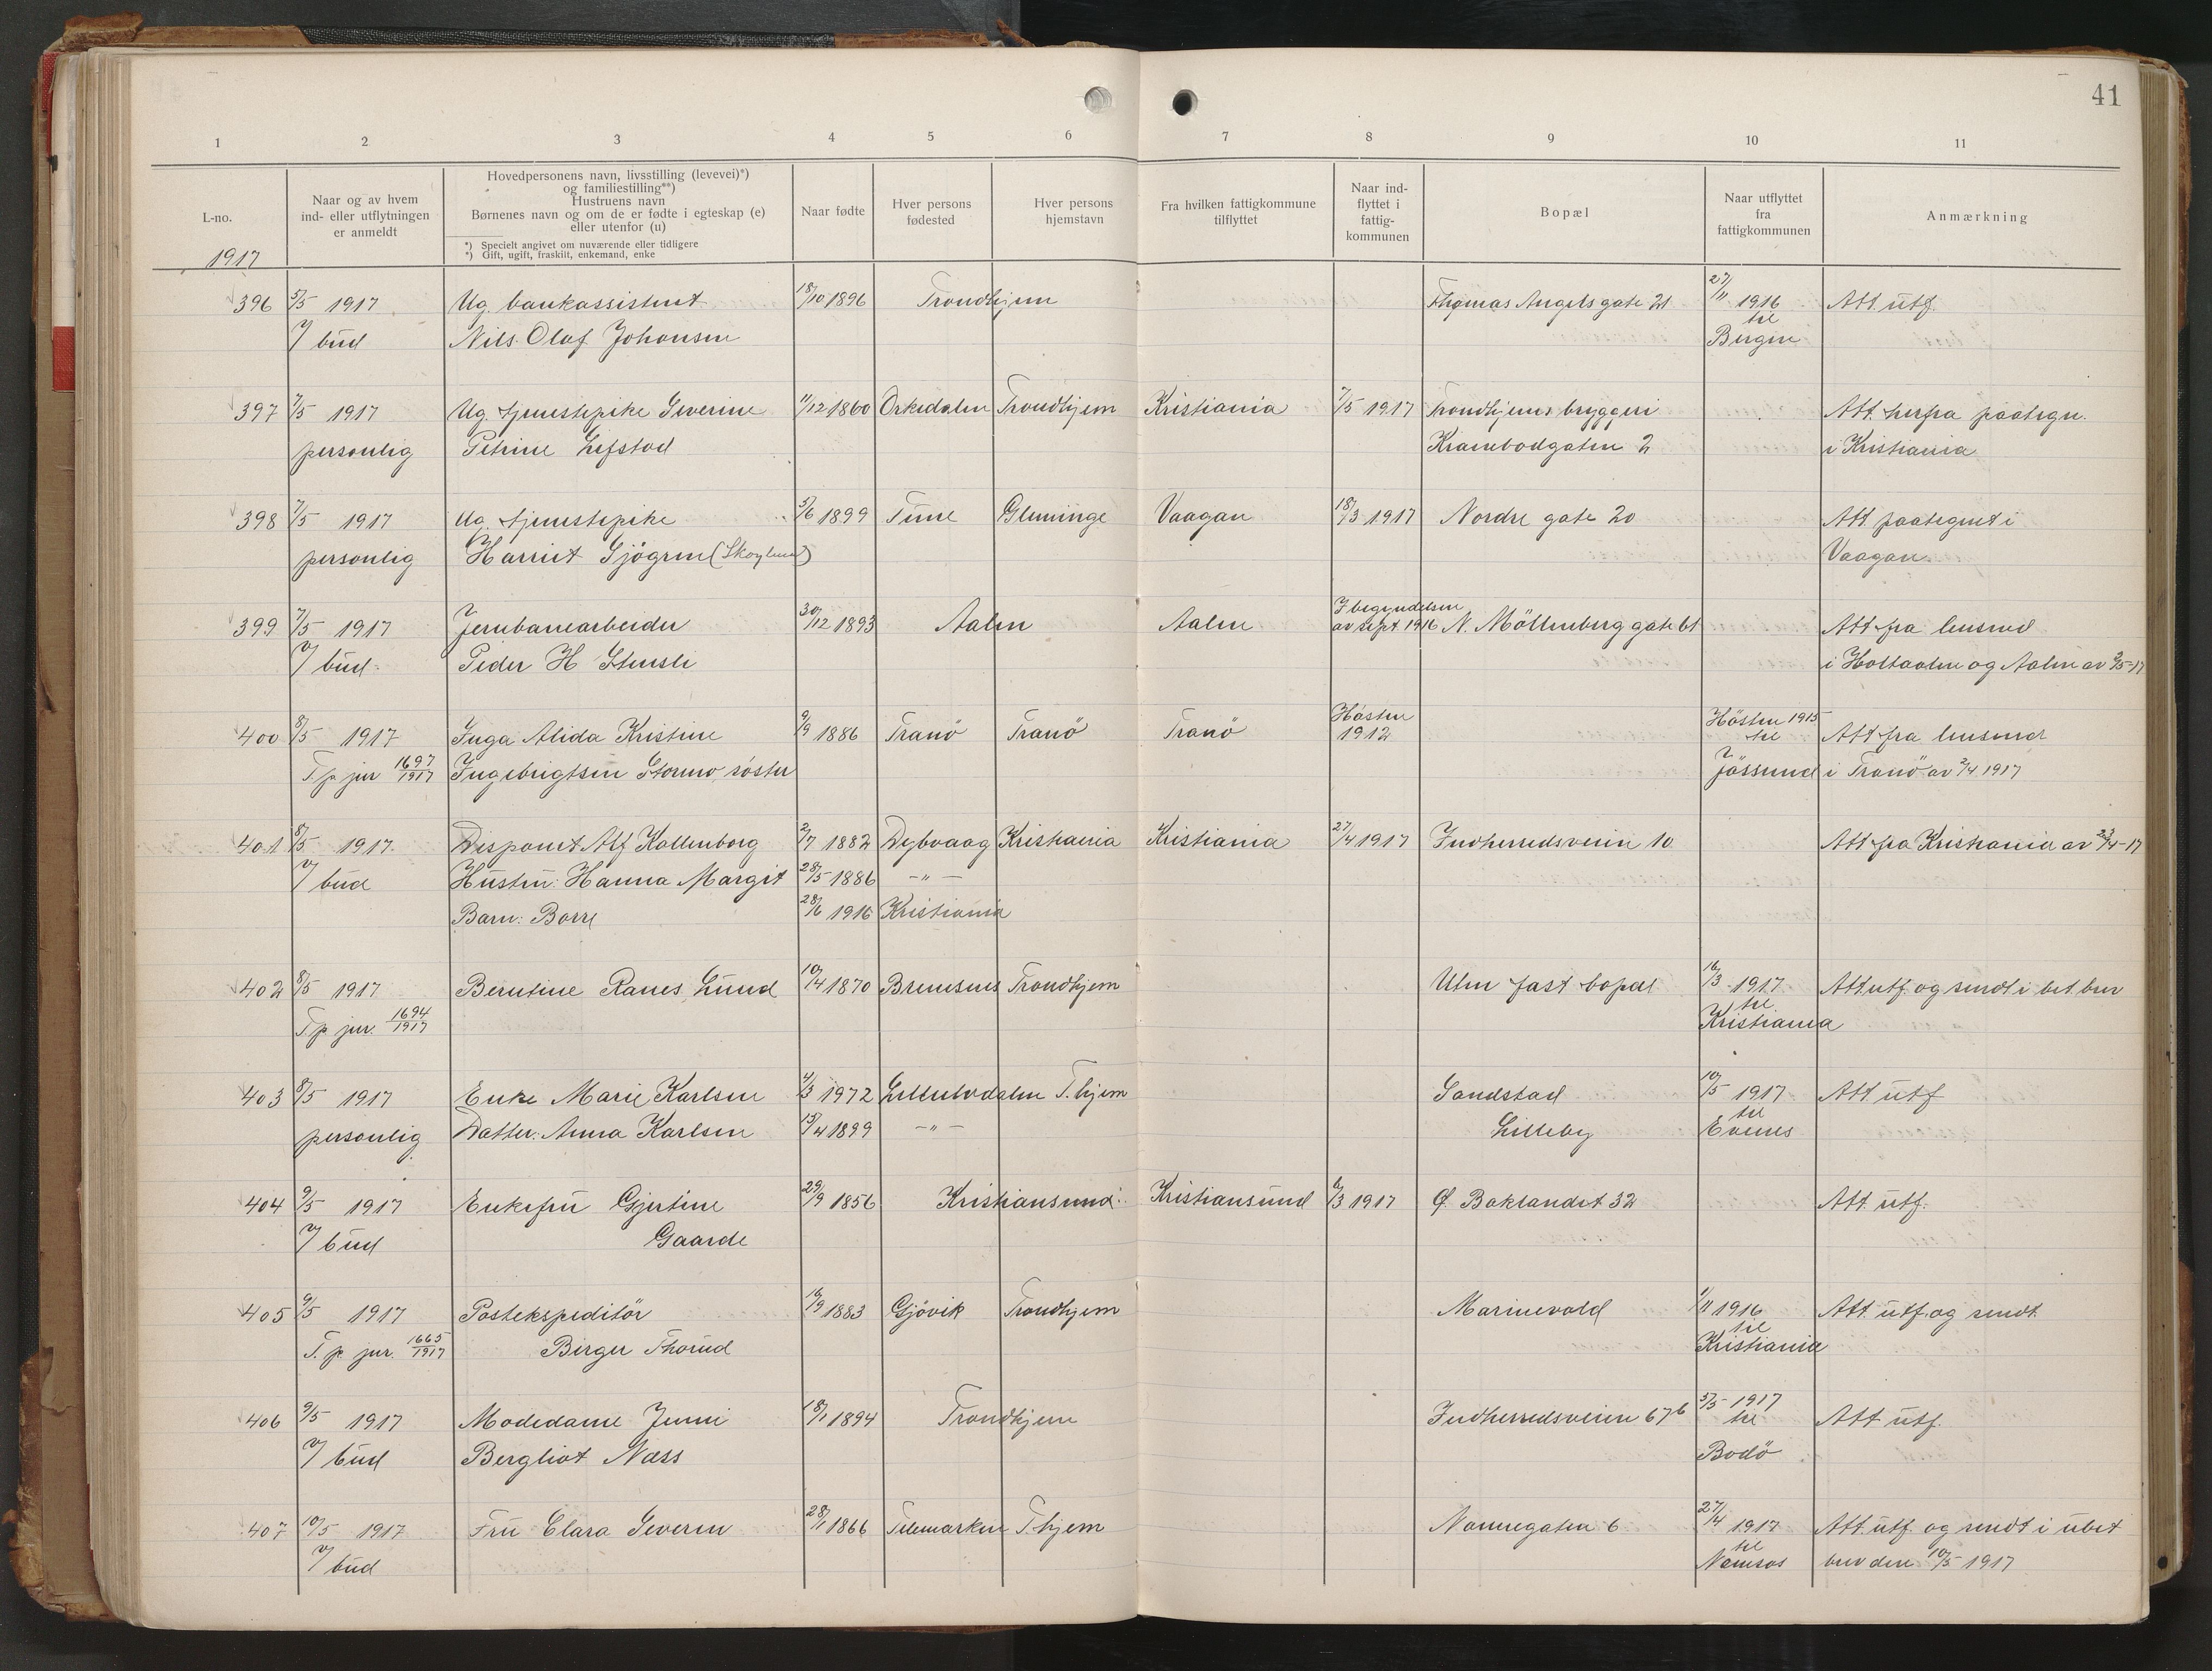 41
1 2 3 4 5 6 7 8 9 10 11
L-no.
1917
Naar og av hvem
ind- eller utflytningen
er anmeldt
Hovedpersonens navn, livsstilling (levevei)*)
og familiestilling**)
Hustruens navn
Børnenes navn og om de er fødte i egteskap (e)
eller utenfor (u)
*) Specielt angivet om nuværende eller tidligere
*) Gift, ugift, fraskilt, enkemand, enke
Naar fødte
Hver persons
fødested
Hver persons
hjemstavn
Fra hvilken fattigkommune
tilflyttet
Naar ind-
flyttet i
fattig-
kommunen
Bopæl
Naar utflyttet
fra
fattigkommunen
Anmærkning
396 5/5 1917 Ug. bankassistent 18/10 1896 Trondhjem Thomas Angels gate 21 27/11 1916 Att. utf.
til
v/ bud Nils Olaf Johansen Bergen
397 7/5 1917 Ug. tjenestepike Severine 11/12 1860 Orkedalen Trondhjem Kristiania 7/5 1917 Trondhjems bryggeri Att. herfra paategn.
personlig Petrine Lefstad Krambodgaten 2 i Kristiania
398 7/5 1917 Ug. tjenestepike 5/6 1899 Tune Glemminge Vaagan 18/3 1917 Nordre gate 20 Att. paategnet i
personlig Harriet Sjögren (Skoglund) Vaagan
399 7/5 1917 Jernbanearbeider 30/12 1893 Aalen Aalen I begyndelsen
av sept. 1916 N. Möllenberg gate 61 Att. fra lensmd
v/ bud. Peder H Stensli i Holtaalen og Aalen av 3/5-17
400 8/5 1917 Inga Alida Kristine 9/9 1886 Tranö Tranö Tranö Hösten
1912 Hösten 1915
til Att. fra lensmd
T. p. jur 1697/1917 Ingebrigtsen Stormo söster Jössund i Tranö av 2/4 1917
401 8/5 1917. Disponent Alf Kallenborg 2/7 1882 Dybvaag Kristiania Kristiania 27/4 1917 Indherredsveien 10 Att. fra Kristiania av 23/4-17
v/ bud Hustru: Hanna Margit 28/5 1886 -"-
Barn: Borre 28/6 1916 Kristiania
402 8/5 1917 Berntine Ranes Lund 10/4 1870 Bremsnes Trondhjem Uten fast bopæl 16/3 1917 Att. utf. og sendt i bet. brev
til
T. p. jur. 1694/1917 Kristiania
403 8/5 1917 Enke Marie Karlsen 4/3 1972 Lilleelvdalen T.hjem Sandstad 10/5 1917 Att utf
til
personlig Datter: Anna Karlsen 15/4 1899 -"- Lilleby Evenes
404 9/5 1917 Enkefru Gjertine 29/9 1856 Kristiansund Kristiansund 6/3 1917 Ø. Baklandet 32 Att. utf.
v/ bud Gaarde
405 9/5 1917 Postekspeditör 16/9 1883 Gjövik Trondhjem Marinevold 1/11 1916 Att. utf. og sendt
til
T. p. jur. 1665/1917 Birger Thorud Kristiania
406 9/5 1917 Modedame Jenni 18/1 1894 Trondhjem Indherredsveien 67b 5/5 1917
til Att utf.
v/ bud Bergliot Næss Bodö
407 10/5 1917 Fru Clara Severin 28/1 1866 Telemarken T.hjem Nonnegaten 6 27/4 1917 Att. utf. og sendt i ubet
til
v/ bud Namsos brev den 10/5 1917